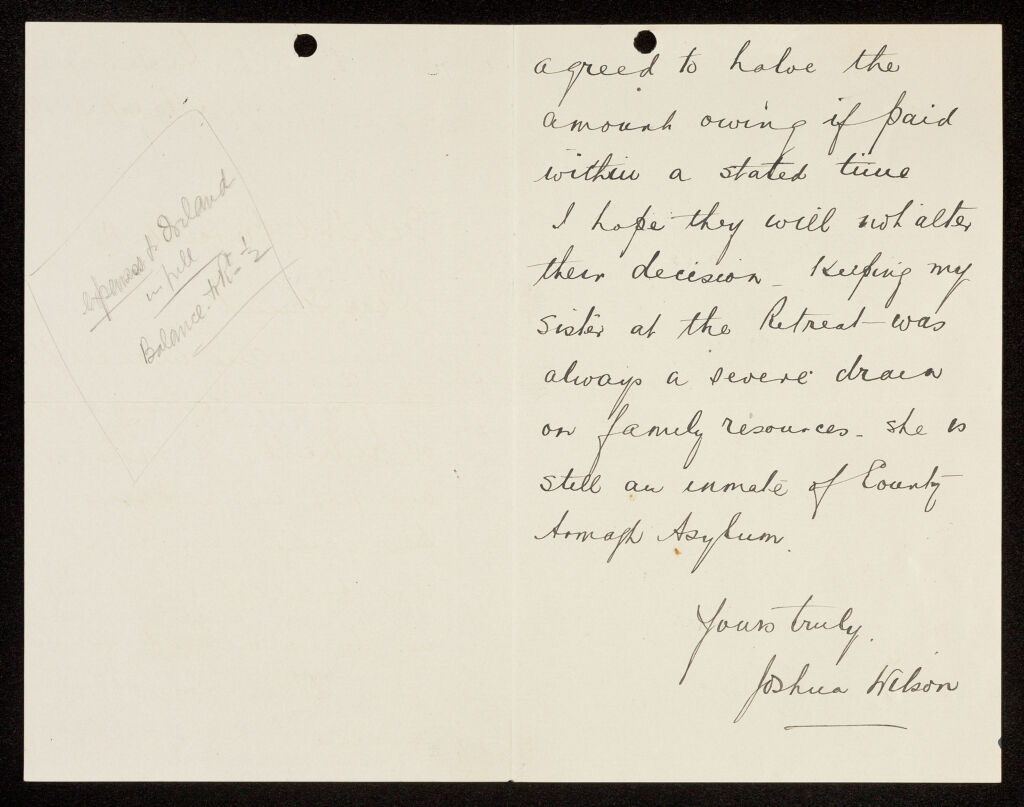 expenses to Ireland
in full
Balance
1/2
agreed to halve the
amount owing if paid
within a stated time
I hope they will not alter
their decision _ Keeping my
sister at the Retreat - was
always a severe drain
on family resources - she is
still an inmate of County
Armagh Asylum.
Yours truly.
Joshua Wilson